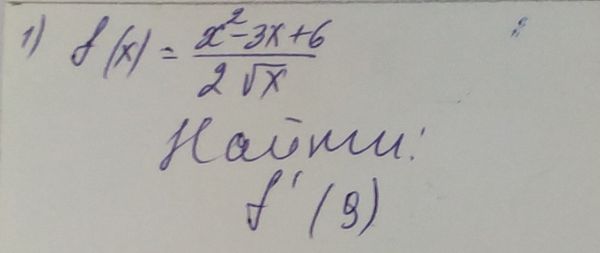 1) f(x) = (x² - 3x + 6) / (2√x)
Найти:
f'(9)